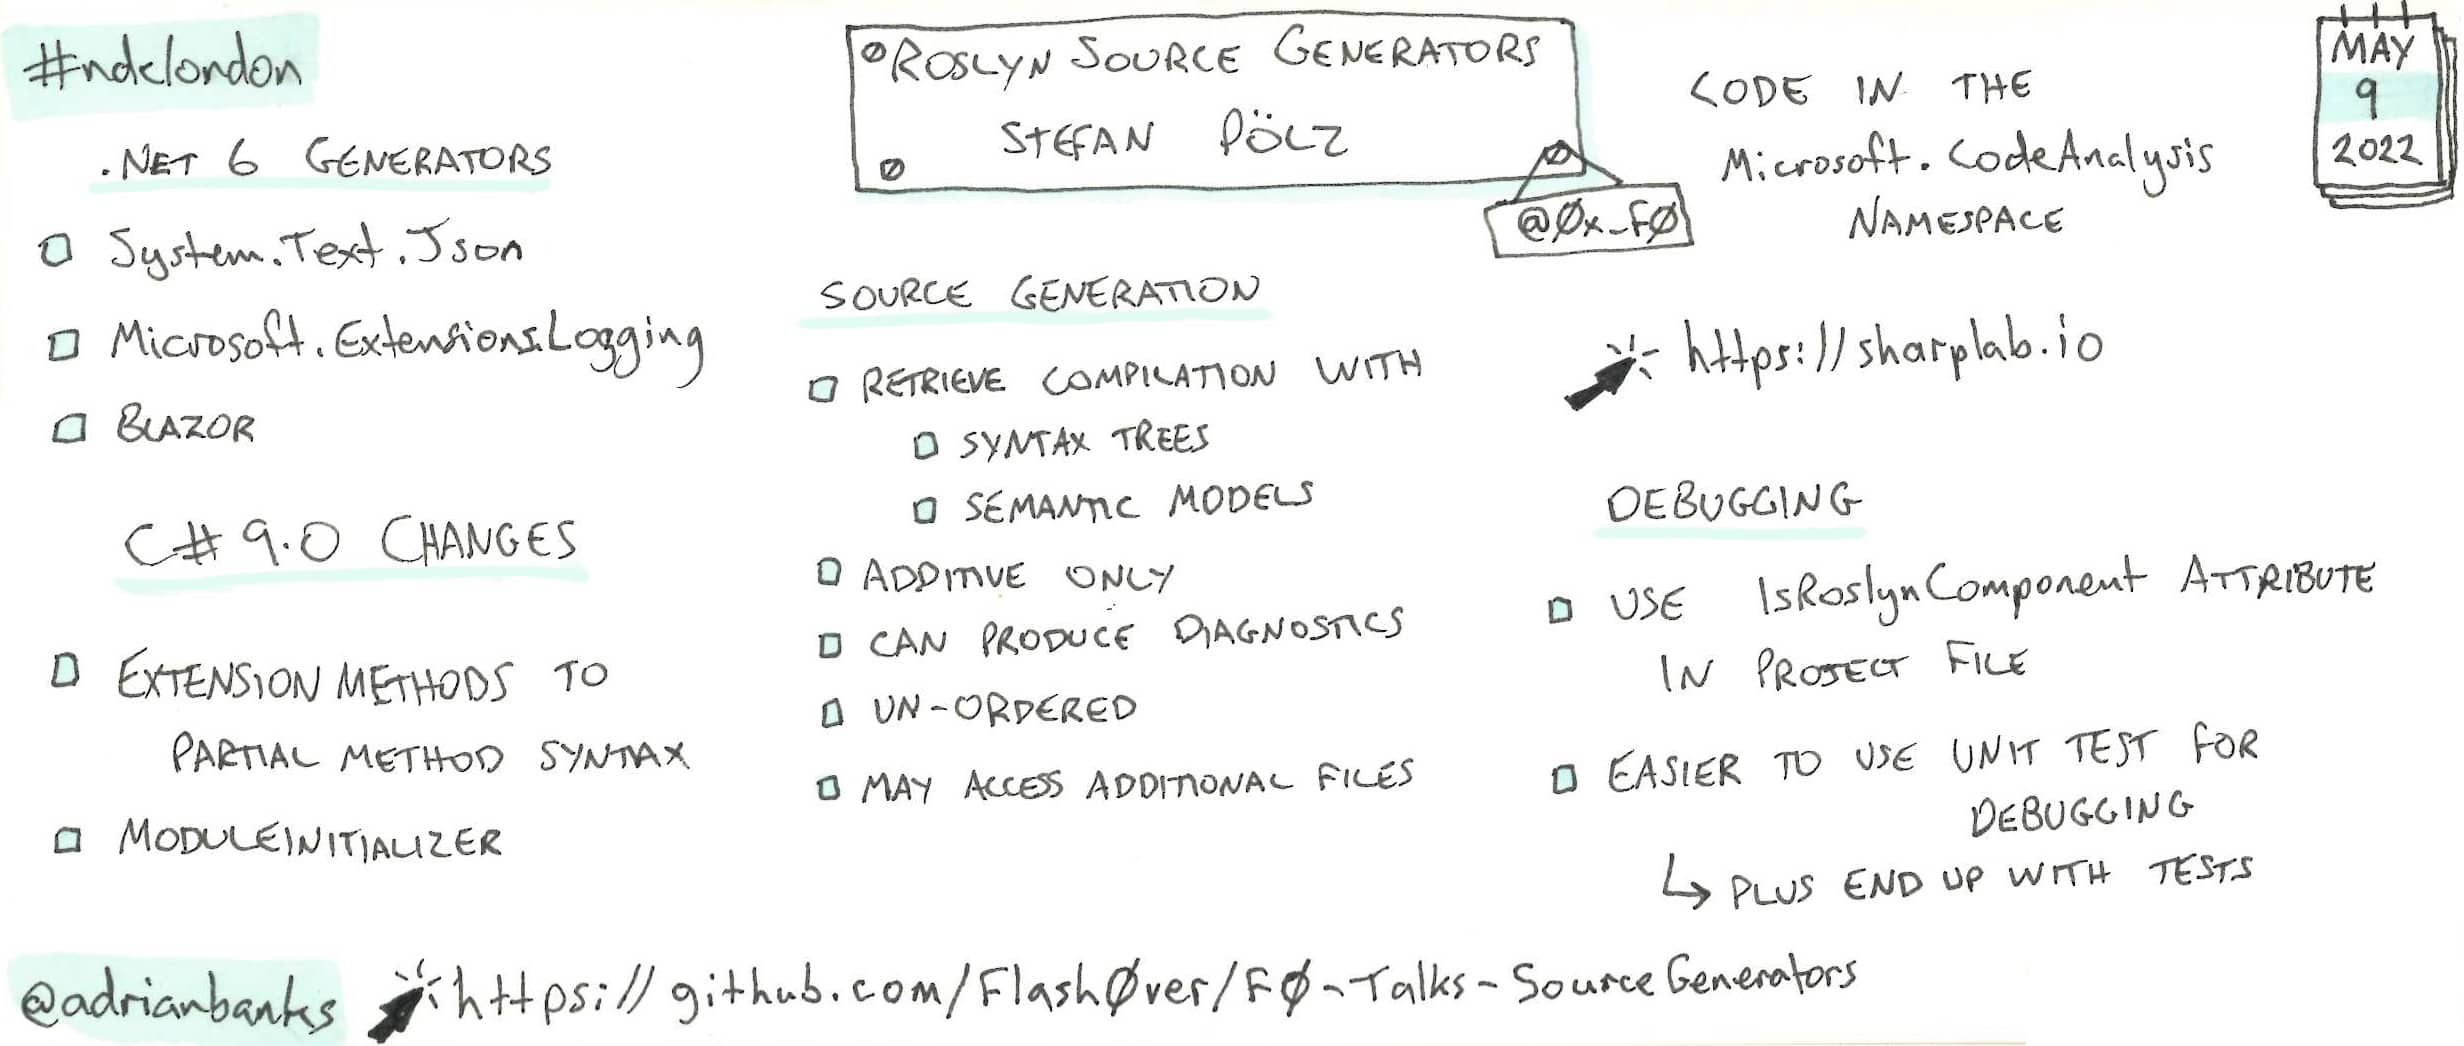 #ndclondon
.NET 6 GENERATORS
System.Text.Json
Microsoft.Extensions.Logging
BLAZOR
C# 9.0 CHANGES
EXTENSION METHODS TO
PARTIAL METHOD SYNTAX
MODULEINITIALIZER
ROSLYN SOURCE GENERATORS
STEFAN PÖLZ
@0x_F0
SOURCE GENERATION
RETRIEVE COMPILATION WITH
SYNTAX TREES
SEMANTIC MODELS
ADDITIVE ONLY
CAN PRODUCE DIAGNOSTICS
UN-ORDERED
MAY ACCESS ADDITIONAL FILES
CODE IN THE
Microsoft.CodeAnalysis
NAMESPACE
MAY
9
2022
https://sharplab.io
DEBUGGING
USE IsRoslynComponent ATTRIBUTE
IN PROJECT FILE
EASIER TO USE UNIT TEST FOR
DEBUGGING
↳ PLUS END UP WITH TESTS
@adrianbanks https://github.com/Flash0ver/F0-Talks-SourceGenerators